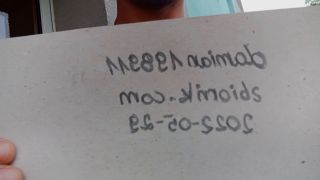 damian198911
zbiornik.com
2022-05-29